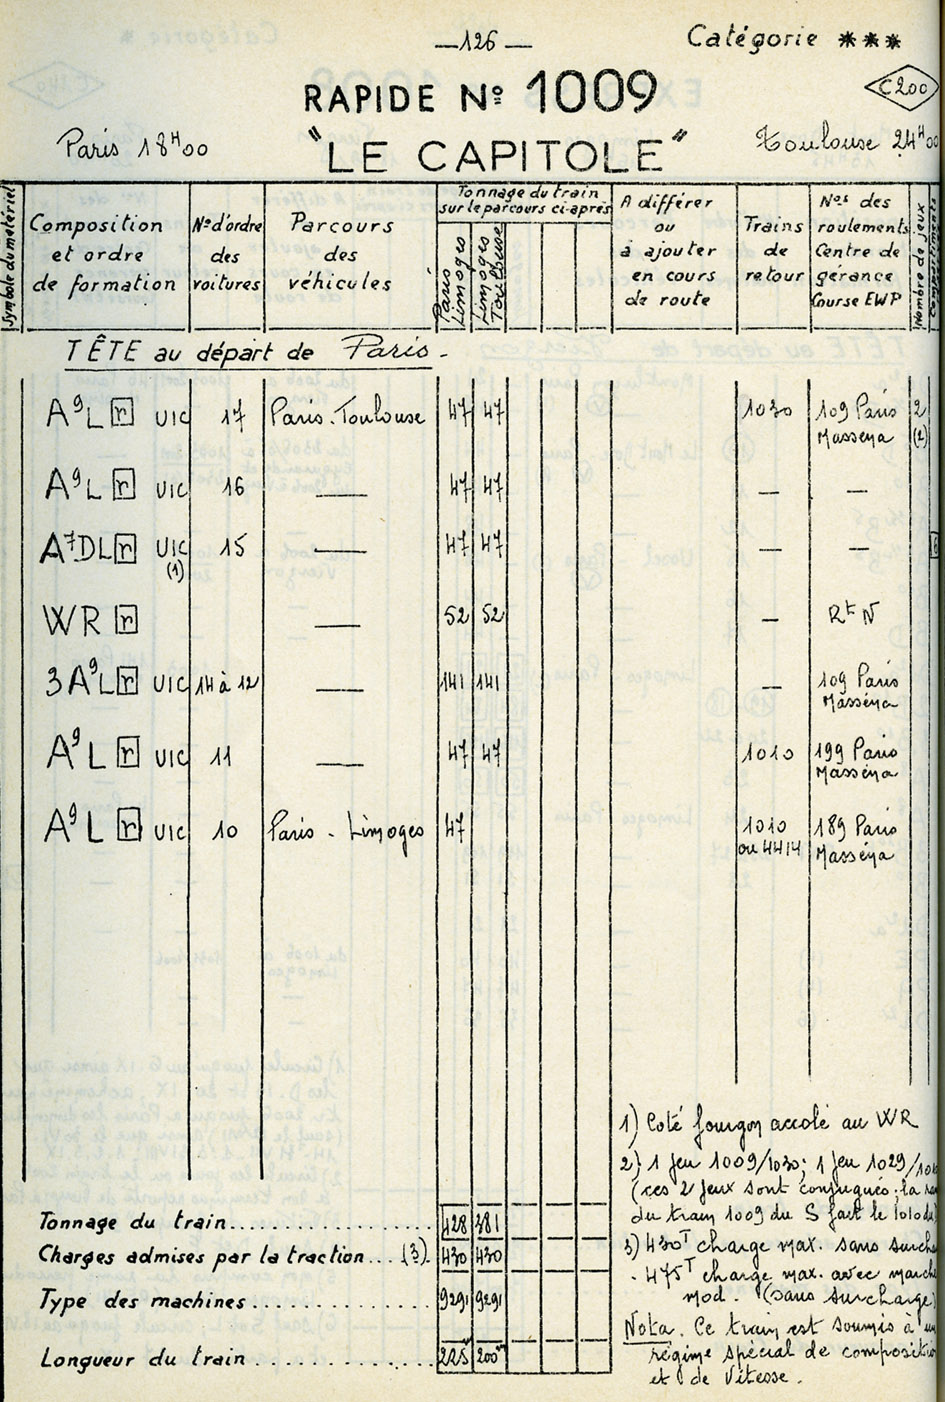 —126— Catégorie ***
RAPIDE Nº 1009 C200
Paris 18H00 "LE CAPITOLE" Toulouse 24H00
Symbole du matériel
Composition et ordre de formation
Nºs d'ordre des voitures
Parcours des véhicules
Tonnage du train sur le parcours ci-après
Paris Limoges
Limoges Toulouse
A différer ou à ajouter en cours de route
Trains de retour
Nos des roulements Centre de gérance Course EWP
Nombre de jeux
Compartiments
TÊTE au départ de Paris.
A9L r UIC 17 Paris.Toulouse 47 47 1030 109 Paris 2
Massena (2)
A9L r UIC 16 — 47 47 — —
A7DL r UIC 15 — 47 47 — —
(1)
WR r — 52 52 — Rt N
3A9L r UIC 14 à 12 — 141 141 — 109 Paris
Masséna
A9L r UIC 11 — 47 47 1010 199 Paris
Masséna
A9L r UIC 10 Paris - Limoges 47 1010 189 Paris
ou 4414 Masséna
1) Coté fourgon accolé au WR
2) 1 jeu 1009/1030; 1 jeu 1029/
(ces 2 jeux sont conjugués; la
du train 1009 du S fait le 1010 du
3) 430T charge max. sans
. 475T charge max. avec marche
mod. (sans surcharge)
Nota. Ce train est soumis à un
régime spécial de composition
et de vitesse.
Tonnage du train............... 428 381
Charges admises par la traction...(3). 430 430
Type des machines............. 9291 9291
Longueur du train.............. 225 200m